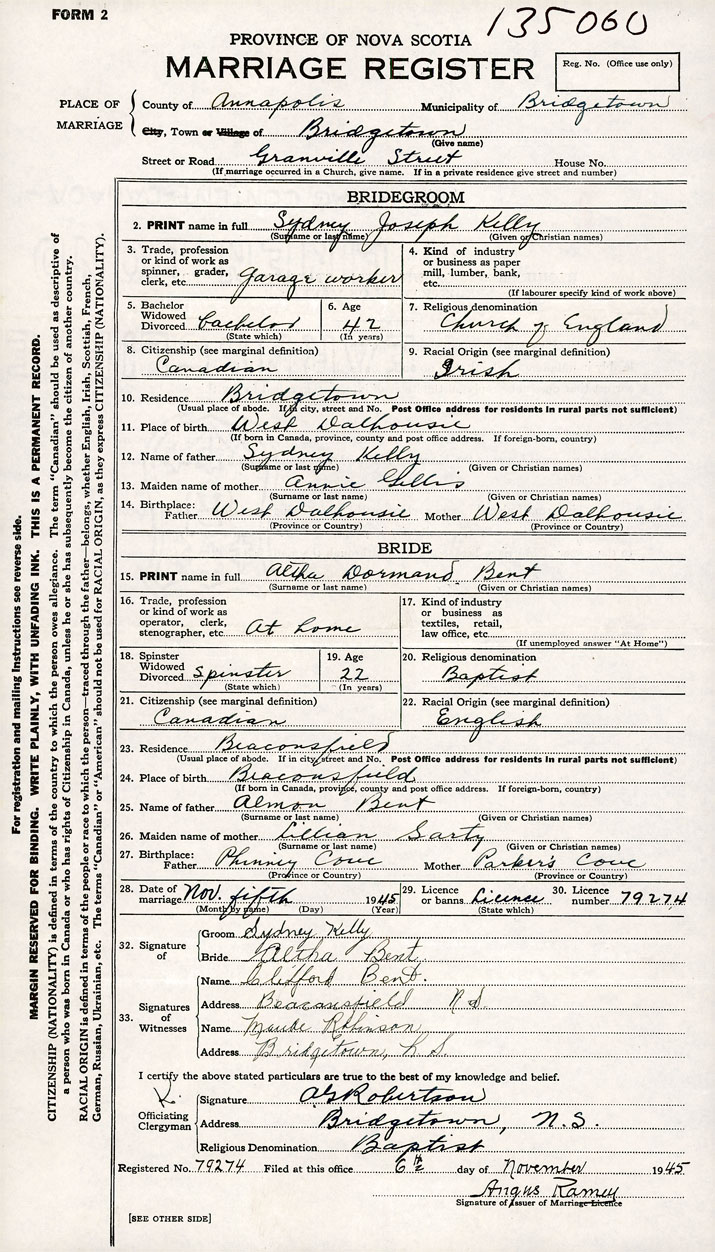 FORM 2
135060
PROVINCE OF NOVA SCOTIA
MARRIAGE REGISTER
Reg. No. (Office use only)
PLACE OF MARRIAGE
County of Annapolis Municipality of Bridgetown
City, Town or Village of Bridgetown
(Give name)
Street or Road Granville Street House No.
(If marriage occurred in a Church, give name. If in a private residence give street and number)
BRIDEGROOM
2. PRINT name in full Sydney Joseph Kelly
(Surname or last name) (Given or Christian names)
3. Trade, profession or kind of work as spinner, grader, clerk, etc. garage worker
4. Kind of industry or business as paper mill, lumber, bank, etc.
(If labourer specify kind of work above)
5. Bachelor Widowed Divorced bachelor
(State which)
6. Age 42
(In years)
7. Religious denomination Church of England
8. Citizenship (see marginal definition) Canadian
9. Racial Origin (see marginal definition) Irish
10. Residence Bridgetown
(Usual place of abode. If in city, street and No. Post Office address for residents in rural parts not sufficient)
11. Place of birth West Dalhousie
(If born in Canada, province, county and post office address. If foreign-born, country)
12. Name of father Sydney Kelly
(Surname or last name) (Given or Christian names)
13. Maiden name of mother Annie Gillis
(Surname or last name) (Given or Christian names)
14. Birthplace: Father West Dalhousie Mother West Dalhousie
(Province or Country) (Province or Country)
BRIDE
15. PRINT name in full Altha Dormand Bent
(Surname or last name) (Given or Christian names)
16. Trade, profession or kind of work as operator, clerk, stenographer, etc. At home
17. Kind of industry or business as textiles, retail, law office, etc.
(If unemployed answer "At Home")
18. Spinster Widowed Divorced Spinster
(State which)
19. Age 22
(In years)
20. Religious denomination Baptist
21. Citizenship (see marginal definition) Canadian
22. Racial Origin (see marginal definition) English
23. Residence Beaconsfield
(Usual place of abode. If in city, street and No. Post Office address for residents in rural parts not sufficient)
24. Place of birth Beaconsfield
(If born in Canada, province, county and post office address. If foreign-born, country)
25. Name of father Almon Bent
(Surname or last name) (Given or Christian names)
26. Maiden name of mother Lillian Sarty
(Surname or last name) (Given or Christian names)
27. Birthplace: Father Phinney Cove Mother Parker's Cove
(Province or Country) (Province or Country)
28. Date of marriage Nov. fifth 1945
(Month by name) (Day) (Year)
29. Licence or banns Licence
(State which)
30. Licence number 79274
32. Signature of
Groom Sydney Kelly
Bride Altha Bent
33. Signatures of Witnesses
Name Clifford Bent.
Address Beaconsfield N S
Name Maude Robinson
Address Bridgetown, N S.
I certify the above stated particulars are true to the best of my knowledge and belief.
Officiating Clergyman
Signature AG Robertson
Address Bridgetown, N.S.
Religious Denomination Baptist
Registered No. 79274 Filed at this office 6th day of November 1945
Angus Ramey
Signature of Issuer of Marriage Licence
[SEE OTHER SIDE]
For registration and mailing instructions see reverse side.
MARGIN RESERVED FOR BINDING. WRITE PLAINLY, WITH UNFADING INK. THIS IS A PERMANENT RECORD.
CITIZENSHIP (NATIONALITY) is defined in terms of the country to which the person owes allegiance. The term "Canadian" should be used as descriptive of
a person who was born in Canada or who has rights of Citizenship in Canada, unless he or she has subsequently become the citizen of another country.
RACIAL ORIGIN is defined in terms of the people or race to which the person—traced through the father—belongs, whether English, Irish, Scottish, French,
German, Russian, Ukrainian, etc. The terms "Canadian" or "American" should not be used for RACIAL ORIGIN, as they express CITIZENSHIP (NATIONALITY).